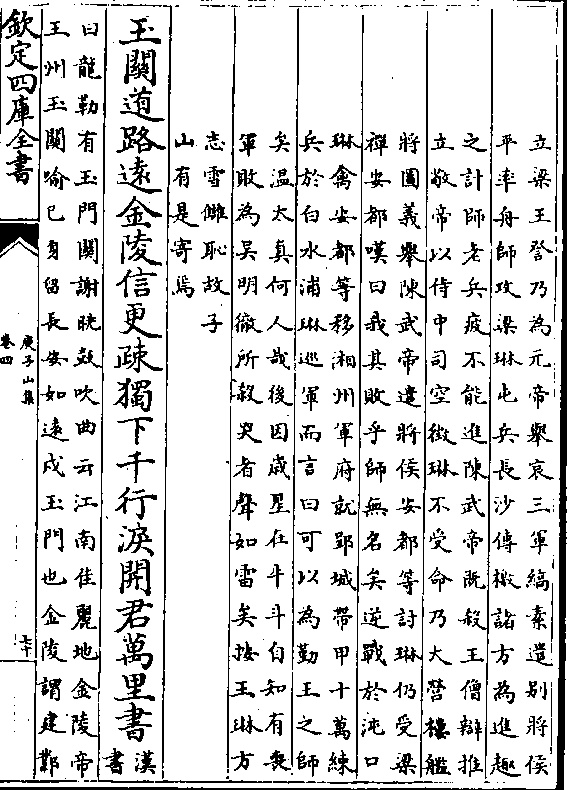 立梁王詧乃為元帝舉哀三軍縞素遣别將侯
平率舟師攻梁琳屯兵長沙傳檄諸方為進趣
之計師老兵疲不能進陳武帝既殺王僧辯推
立敬帝以侍中司空徵琳不受命乃大營樓艦
將圖義舉陳武帝遣將侯安都等討琳仍受梁
禪安都嘆曰我其敗乎師無名矣逆戰於沌口
琳禽安都等移湘州軍府就郢城帶甲十萬練
兵於白水浦琳巡軍而言曰可以為勤王之師
矣温太真何人哉後因歲星在牛斗自知有喪
軍敗為吴明徹所殺哭者聲如雷矣按王琳方
志雪讎恥故子
山有是寄焉
玉關道路遠金陵信更疎獨下千行淚開君萬里書
漢書
曰龍勒有玉門關謝朓鼓吹曲云江南佳麗地金陵帝
王州玉關喻已身留長安如遠戍玉門也金陵謂建鄴
欽定四庫全書
庾子山集
卷四
七十